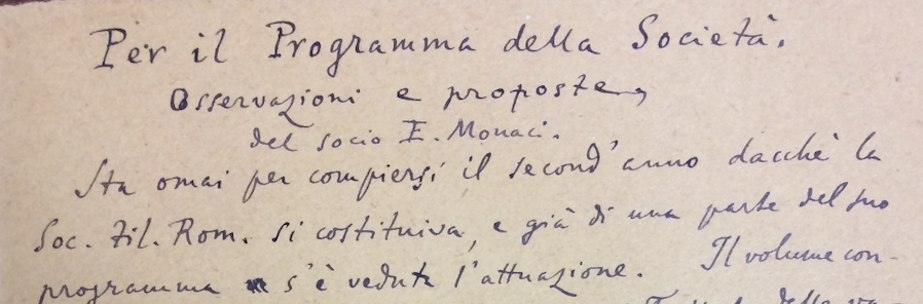 Per il Programma della Società.
Osservazioni e proposte
del socio E. Monaci.
Sta omai per compiersi il second'anno dacchè la
Soc. Fil. Rom. si costituiva, e già di una parte del suo
programma s'è veduta l'attuazione. Il volume con-
della